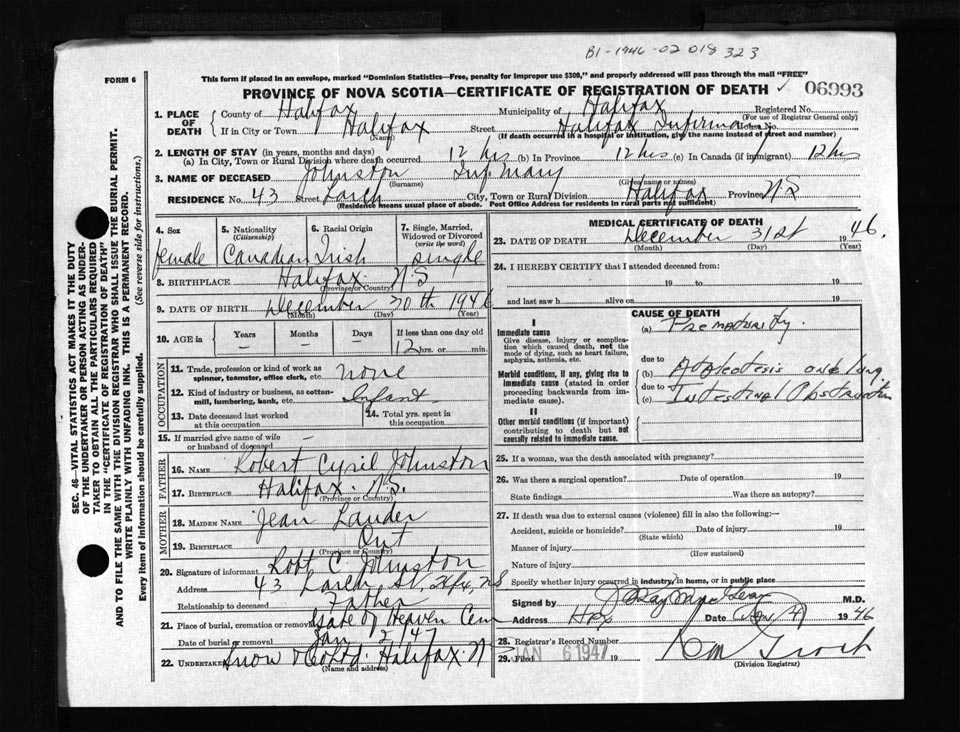 B1-1946-02 018 323
FORM 6
This form if placed in an envelope, marked "Dominion Statistics—Free, penalty for improper use $300," and properly addressed will pass through the mail "FREE"
PROVINCE OF NOVA SCOTIA—CERTIFICATE OF REGISTRATION OF DEATH ✓ 06993
1. PLACE OF DEATH { County of Halifax Municipality of Halifax Registered No.
(For use of Registrar General only)
If in City or Town Halifax Street Halifax Infirmary No.
(Name) (If death occurred in a hospital or institution, give the name instead of street and number)
2. LENGTH OF STAY (in years, months and days)
(a) In City, Town or Rural Division where death occurred 12 hrs (b) In Province 12 hrs (c) In Canada (if immigrant) 12 hrs
3. NAME OF DECEASED Johnston Inf Mary
(Surname) (Given name or names)
RESIDENCE No. 43 Street Larch City, Town or Rural Division Halifax Province NS
(Residence means usual place of abode. Post Office Address for residents in rural parts not sufficient)
SEC. 46—VITAL STATISTICS ACT MAKES IT THE DUTY
OF THE UNDERTAKER OR PERSON ACTING AS UNDER-
TAKER TO OBTAIN ALL THE PARTICULARS REQUIRED
IN THE "CERTIFICATE OF REGISTRATION OF DEATH"
AND TO FILE THE SAME WITH THE DIVISION REGISTRAR WHO SHALL ISSUE THE BURIAL PERMIT.
WRITE PLAINLY WITH UNFADING INK. THIS IS A PERMANENT RECORD.
Every item of information should be carefully supplied. (See reverse side for instructions.)
4. Sex 5. Nationality (Citizenship) 6. Racial Origin 7. Single, Married, Widowed or Divorced (write the word)
female Canadian Irish single
8. BIRTHPLACE Halifax NS
(Province or Country)
9. DATE OF BIRTH December 30th 1946
(Month) (Day) (Year)
10. AGE in Years Months Days If less than one day old
– – – 12 hrs. or min.
OCCUPATION
11. Trade, profession or kind of work as
spinner, teamster, office clerk, etc. none
12. Kind of industry or business, as cotton-
mill, lumbering, bank, etc. Infant
13. Date deceased last worked
at this occupation
14. Total yrs. spent in
this occupation
15. If married give name of wife
or husband of deceased –
FATHER
16. NAME Robert Cyril Johnston
17. BIRTHPLACE Halifax N.S.
(Province or Country)
MOTHER
18. MAIDEN NAME Jean Lauder
19. BIRTHPLACE Ont
(Province or Country)
20. Signature of informant Robt C Johnston
Address 43 Larch St, Hfx, NS
Relationship to deceased Father
21. Place of burial, cremation or removal Gate of Heaven Cem
Date of burial or removal Jan 2/47
22. UNDERTAKER Snow & Co Ltd. Halifax NS
(Name and address)
MEDICAL CERTIFICATE OF DEATH
23. DATE OF DEATH December 31st 1946.
(Month) (Day) (Year)
24. I HEREBY CERTIFY that I attended deceased from:
19 to 19
and last saw h alive on 19
CAUSE OF DEATH
I
Immediate cause
Give disease, injury or complica-
tion which caused death, not the
mode of dying, such as heart failure,
asphyxia, asthenia, etc.
(a) Prematurity.
due to
Morbid conditions, if any, giving rise to
immediate cause (stated in order
proceeding backwards from im-
mediate cause).
(b) Atelectesis one lung
due to
(c) Intestinal Obstruction
II
Other morbid conditions (if important)
contributing to death but not
causally related to immediate cause.
25. If a woman, was the death associated with pregnancy?
26. Was there a surgical operation? Date of operation 19
State findings Was there an autopsy?
27. If death was due to external causes (violence) fill in also the following:—
Accident, suicide or homicide? Date of injury 19
(State which)
Manner of injury
(How sustained)
Nature of injury
Specify whether injury occurred in industry, in home, or in public place
Signed by M.D.
Address Hfx Date Jan/4/ 1946
28. Registrar's Record Number
29. Filed JAN 6 1947 19
(Division Registrar)